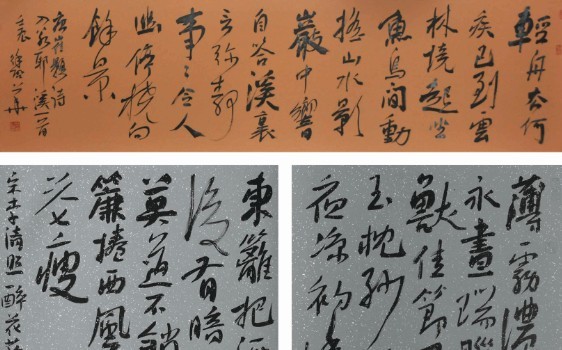 輕舟去何
疾已到雲
林境起坐
魚鳥間動
搖山水影
巖中響
自答溪裏
言弥静
事〻令人
幽停橈向
餘景
唐崔顥詩
入若耶溪一首
薄霧濃
永晝瑞腦
獸佳節
玉枕紗
夜涼初
東籬把酒
後有暗
莫道不銷
簾捲西風
瘦
宋李清照醉花